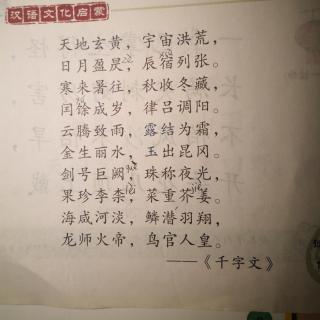 汉语文化启蒙
天地玄黄，宇宙洪荒，
日月盈昃，辰宿列张。
寒来暑往，秋收冬藏，
闰馀成岁，律吕调阳。
云腾致雨，露结为霜，
金生丽水，玉出昆冈。
剑号巨阙，珠称夜光，
果珍李柰，菜重芥姜。
海咸河淡，鳞潜羽翔，
龙师火帝，鸟官人皇。
——《千字文》